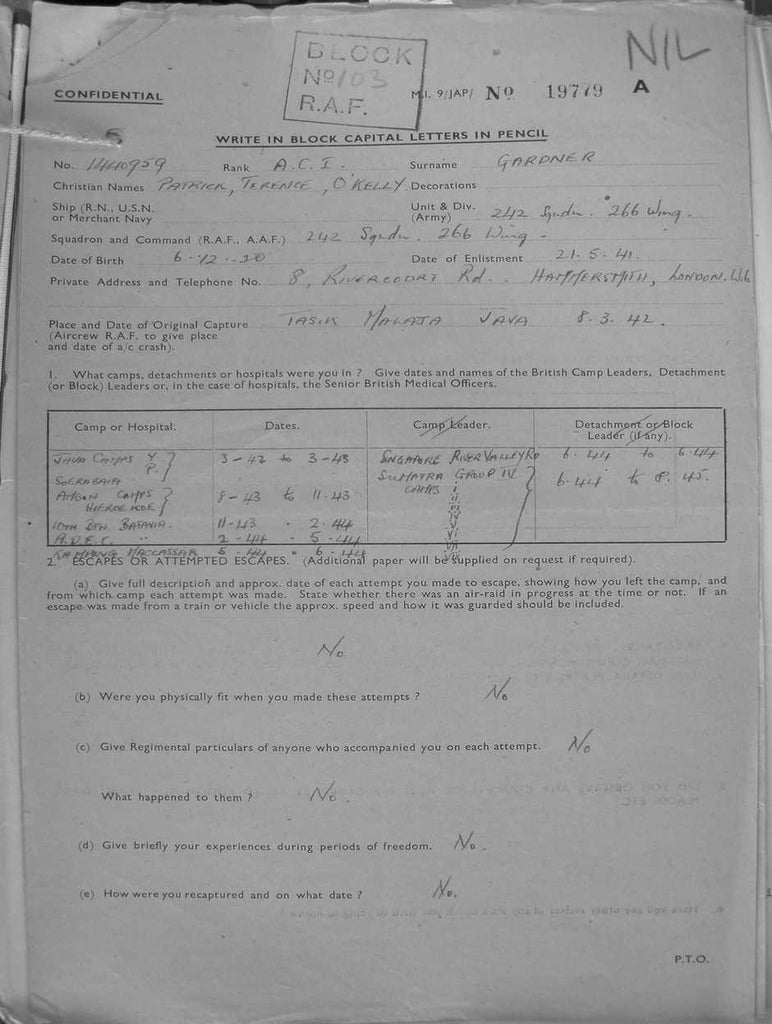 BLOCK
No 103
R.A.F.
NIL
CONFIDENTIAL
M.I. 9/JAP/ No 19779 A
WRITE IN BLOCK CAPITAL LETTERS IN PENCIL
No. 1440959 Rank A.C.I. Surname GARDNER
Christian Names PATRICK, TERENCE, O'KELLY Decorations
Ship (R.N., U.S.N. or Merchant Navy Unit & Div. (Army) 242 Sqdn. 266 Wing.
Squadron and Command (R.A.F., A.A.F.) 242 Sqdn. 266 Wing -
Date of Birth 6-12-20 Date of Enlistment 21.5.41.
Private Address and Telephone No. 8, RIVERCOURT Rd. HAMMERSMITH, LONDON. W.6
Place and Date of Original Capture TASIK MALAJA JAVA 8.3.42.
(Aircrew R.A.F. to give place
and date of a/c crash).
1. What camps, detachments or hospitals were you in ? Give dates and names of the British Camp Leaders, Detachment
(or Block) Leaders or, in the case of hospitals, the Senior British Medical Officers.
Camp or Hospital. Dates. Camp Leader. Detachment or Block
Leader (if any).
JAVA CAMPS 3-42 to 3-43 SINGAPORE RIVER VALLEY RD 6.44 to 6.44
SOERABAIA SUMATRA GROUP IV 6.44 to 8.45.
AMBON CAMPS 8-43 to 11.43 CAMPS i
ii
iii
IV
BATAVIA. 11-43 - 2.44 V
A.D.E.C. " 2-44 - 5-44 VI
MACCASSAR 5-44 " 6.44 VII
2. ESCAPES OR ATTEMPTED ESCAPES. (Additional paper will be supplied on request if required).
(a) Give full description and approx. date of each attempt you made to escape, showing how you left the camp, and
from which camp each attempt was made. State whether there was an air-raid in progress at the time or not. If an
escape was made from a train or vehicle the approx. speed and how it was guarded should be included.
No
(b) Were you physically fit when you made these attempts ? No
(c) Give Regimental particulars of anyone who accompanied you on each attempt. No
What happened to them ? No.
(d) Give briefly your experiences during periods of freedom. No.
(e) How were you recaptured and on what date ? No.
P.T.O.